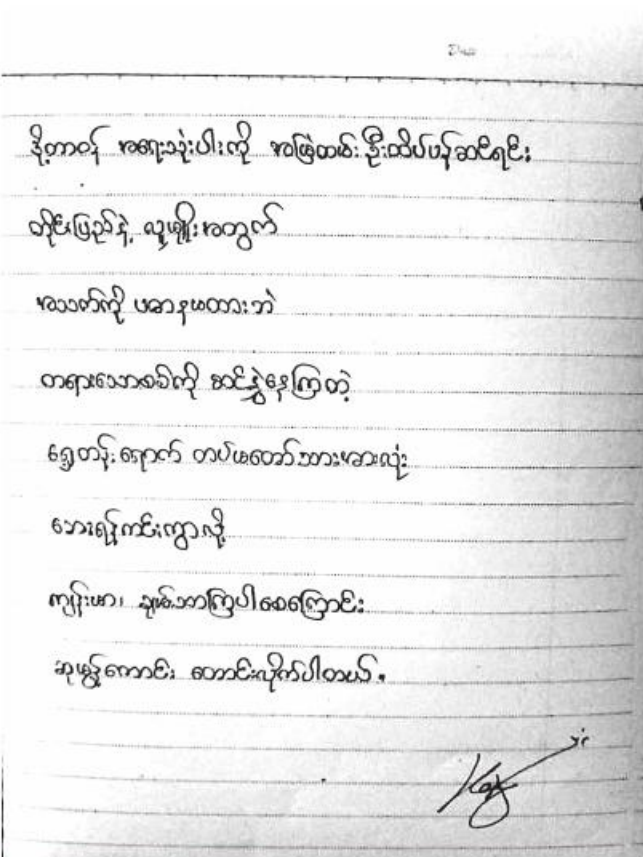 ဒို့တာဝန် အရေးသုံးပါးကို အမြဲထမ်း ဦးထိပ်ပန်ဆင်ရင်း
တိုင်းပြည်နဲ့ လူမျိုးအတွက်
အသက်ကို ပဓာနမထားဘဲ
တရားသောစစ်ကို ဆင်နွှဲနေကြတဲ့
ရှေ့တန်းရောက် တပ်မတော်သားအားလုံး
ဘေးရန်ကင်းကွာလို့
ကျန်းမာ၊ ချမ်းသာကြပါစေကြောင်း
ဆုမွန်ကောင်း တောင်းလိုက်ပါတယ်။